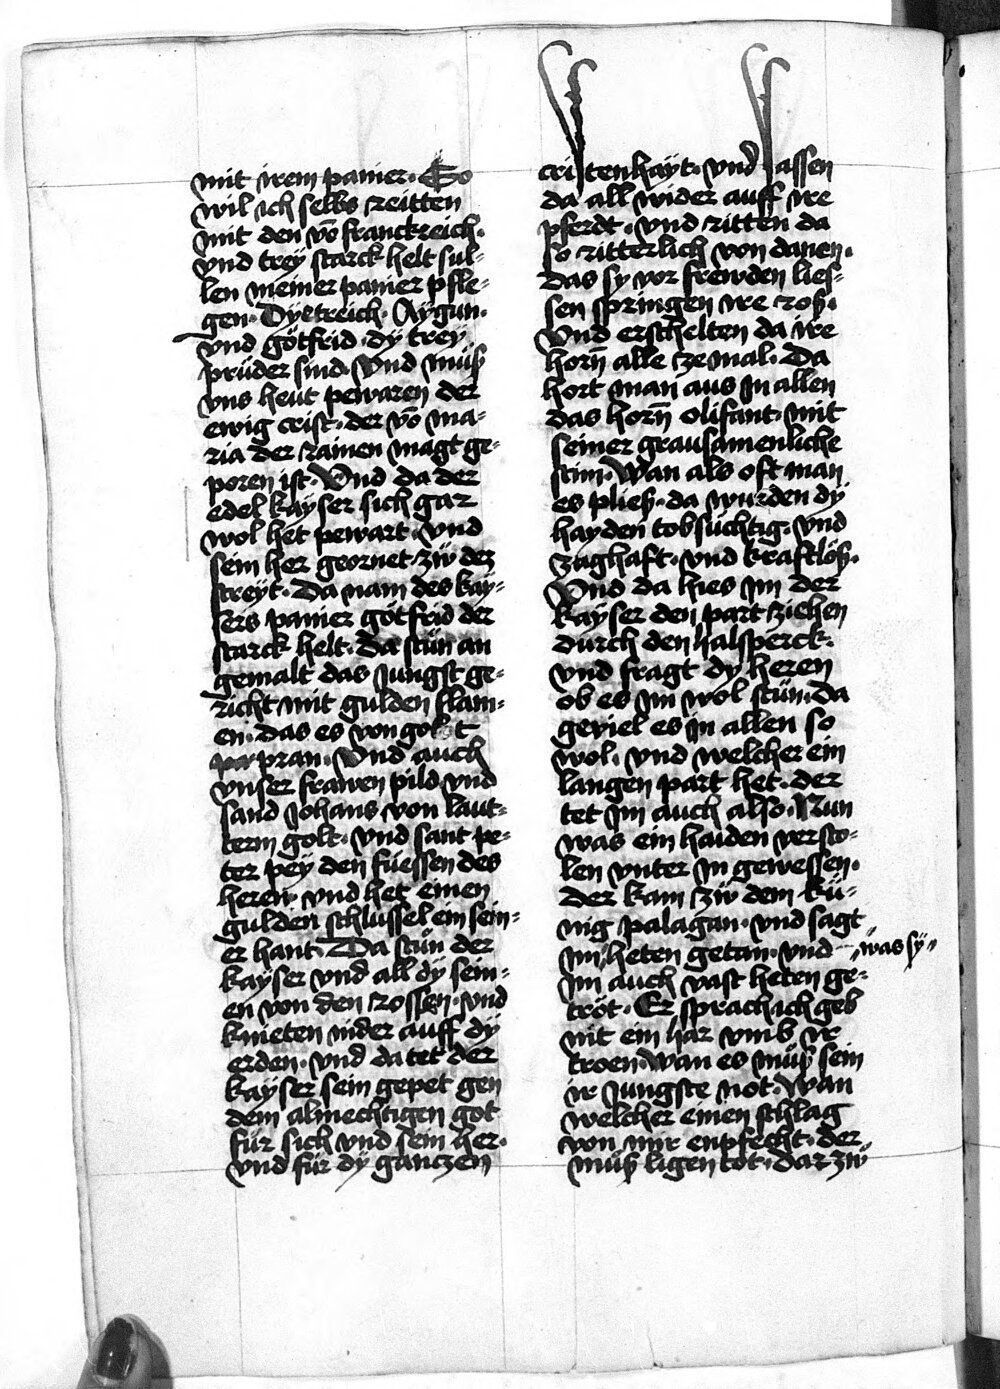 mit irem panier. So
wil ich selbs reitten
mit den vō franckreich.
vnd trey starck helt sul-
len meiner panier pfle-
gen. Dyetreich. Aygun.
vnd götfrid. dy trey
prüder sind. Vnd müß
vns heut pewaren der
ewig crist. der vō ma-
ria der rainen magt ge-
poren ist. Vnd da der
edel kayser sich gar
wol het pewart. vnd
sein her geornet zw dez
streyt. Da nam des kay-
sers panier götfrid der
starck helt. Da stün an
gemalt das Jungst ge-
richt mit gulden flam-
en. das es von golt
pran. Vnd auch
vnser frawen pild vnd
sand Johans von laut-
term golt. vnd sant pe-
ter pey den fuessen des
heren. vnd het einen
gulden schlussel ein sein-
er hant. Da stün der
kayser vnd all dy sein-
en von den rossen. vnd
knieten nider auff dy
erden. vnd da tet der
kayser sein gepet gen
dem almechtigen got
für sich vnd sein her.
vnd für dy ganczen
cristenhayt. vnd sassen
da all wider auff ire
pferdt. vnd ritten da
so ritterlich von danen.
das sy vor frewden lies-
sen springen ire roß.
Vnd erschelten da ire
horn alle ze mal. Da
hort man aus Jn allen
das horn̄ olifant. mit
seiner grausamenliche
stim. Wan als oft man
es pließ. da wurden dy
hayden tobsüchtig. vnd
zaghaft. vnd kraftlöß.
Vnd da hies Jm der
kayser den part ziehen
durch den halsperck.
vnd fragt dy heren
ob es Jm wol stün. da
geviel es Jn allen so
wol. vnd welcher ein
langen part het. der
tet Jm auch also. Nun
was ein haiden versto-
len vnter Jn gewessen.
der kam zw dem kü-
nig palagan. vnd sagt
Jm heten getan. vnd was sy
Jm auch vast heten ge-
tröt. Er sprach ach geb
nit ein har vmb ir
troen. Wan es müß sein
ir Jungste not. Wan
welcher einen schlag
von mir enpfecht. der
müß ligen tot. dar zw